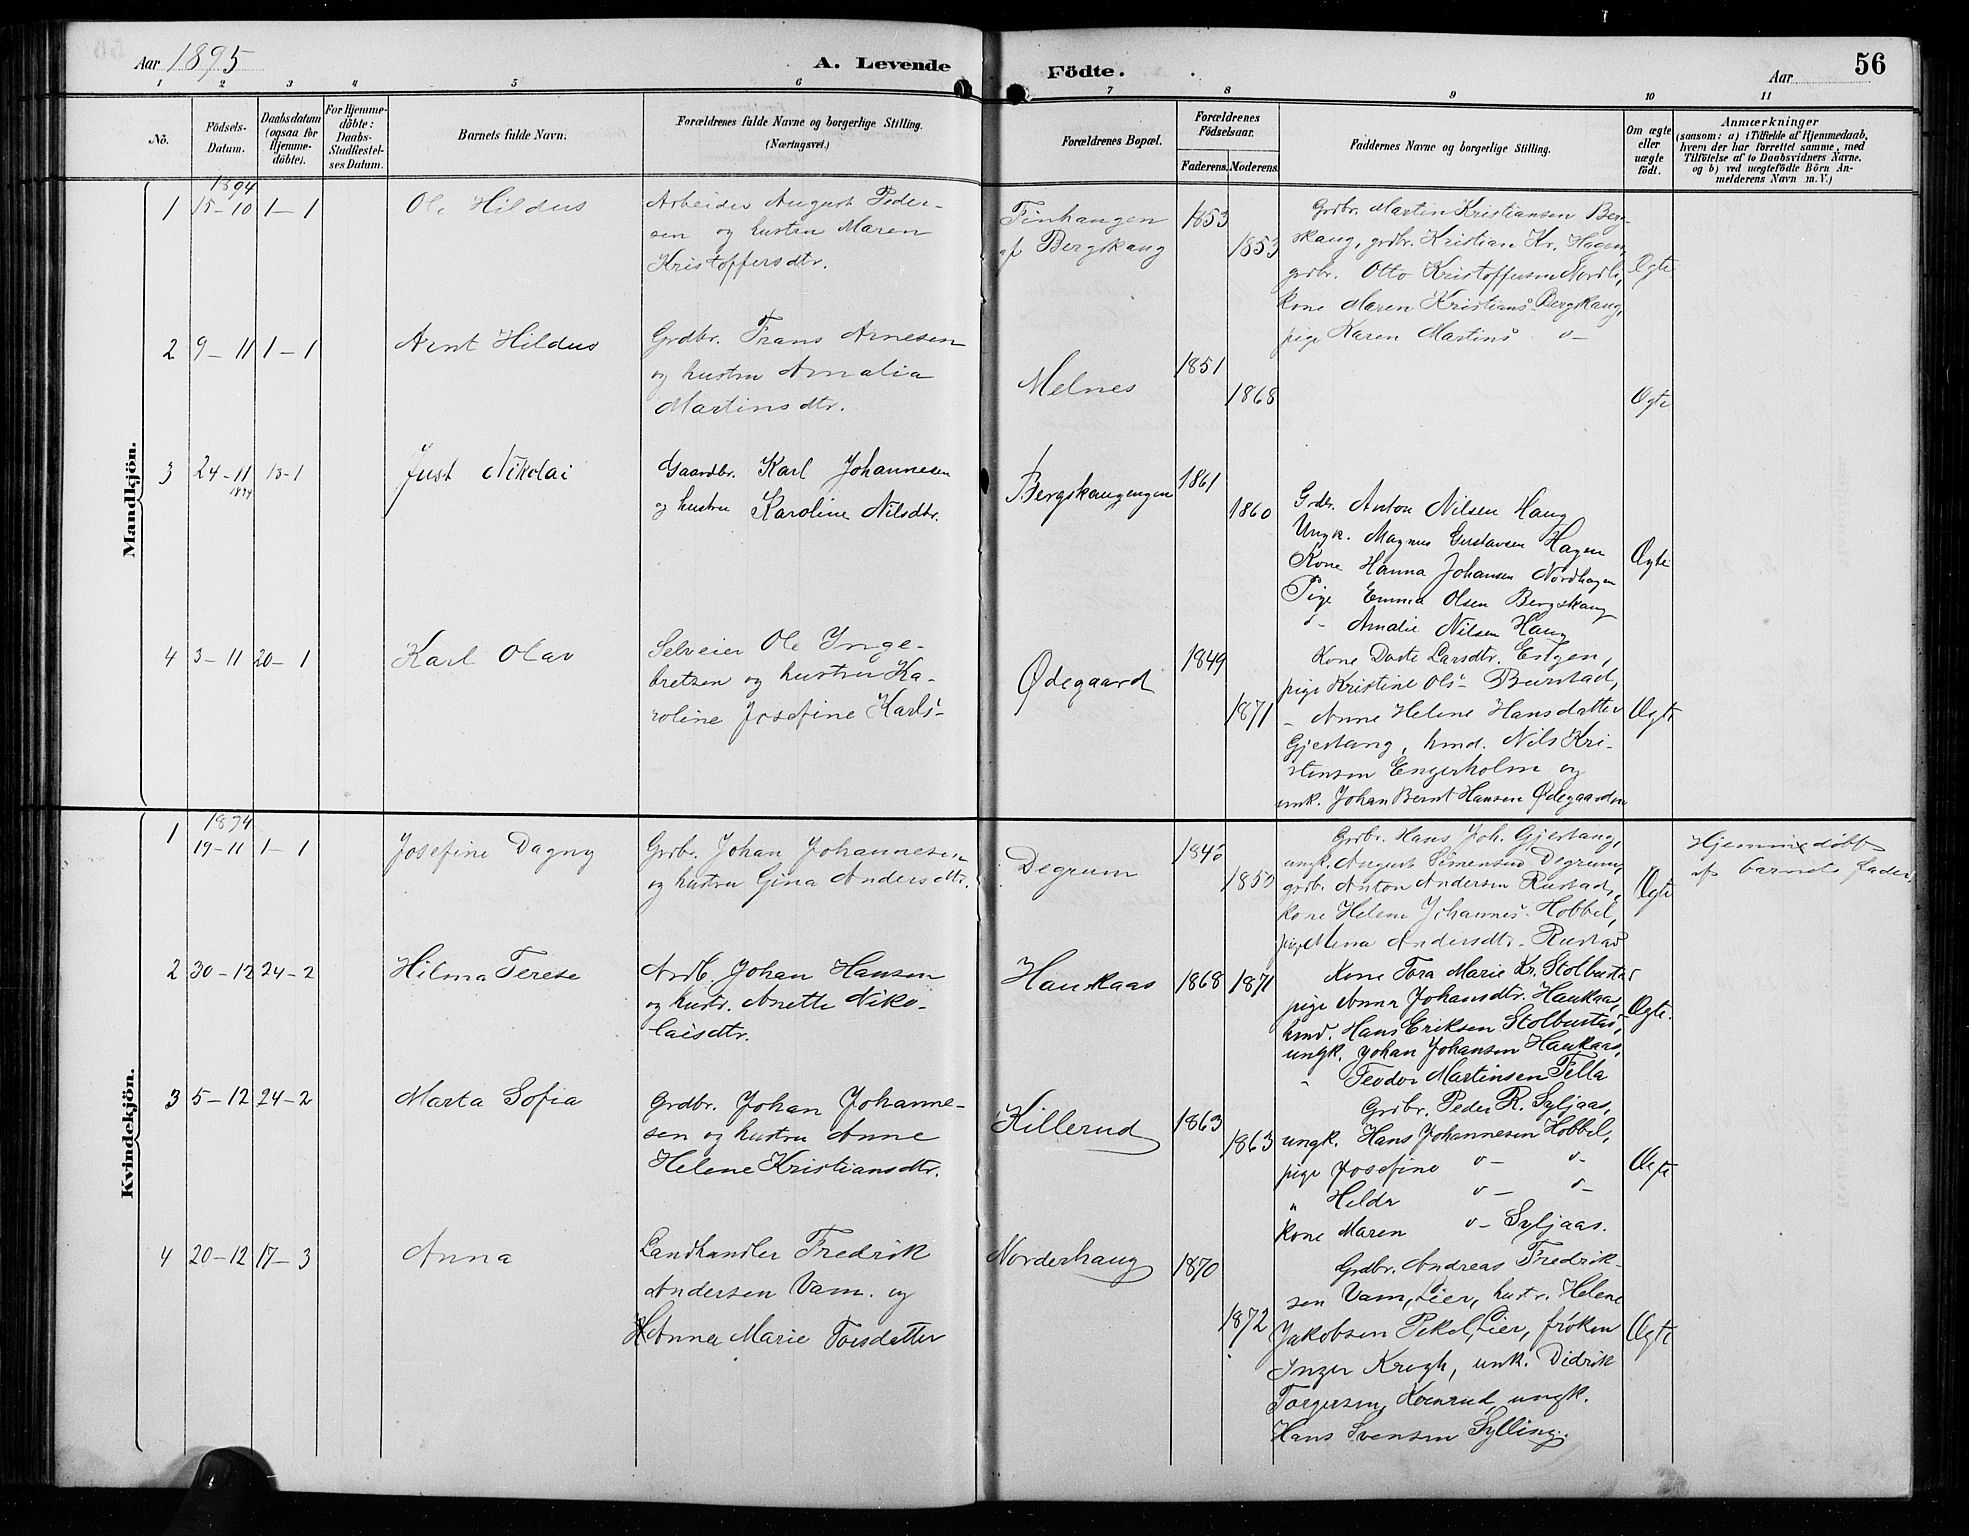 Aar 1895
A. Levende
Födte.
Aar
56
1 2 3 4 5 6 7 8 9 10 11
No.
Födsels-
Datum.
Daabsdatum
(ogsaa for
Hjemme-
döbte).
For Hjemme-
döbte:
Daabs-
Stadfæstel-
ses Datum.
Barnets fulde Navn.
Forældrenes fulde Navne og borgerlige Stilling.
(Næringsvei.)
Forældrenes Bopæl.
Forældrenes
Födselsaar.
Faderens. Moderens.
Faddernes Navne og borgerlige Stilling.
Om ægte
eller
uægte
födt.
Anmærkninger
(saasom: a) i Tilfælde af Hjemmedaab,
hvem der har forrettet samme, med
Tilföielse af to Daabsvidners Navne,
og b) ved uægtefödte Börn An-
melderens Navn m. V.)
Mandkjön.
1894
1 15-10 1-1 Ole Hildus
Arbeider August Peder-
sen og hustru Maren
Kristoffersdtr.
Finhaugen
af Bergskaug
1853
1853
Grdbr. Martin Kristiansen Berg-
skaug, grdbr. Kristian Kr. Hagen,
grdbr. Otto Kristoffersen Nordli,
kone Maren Kristians- Bergskaug,
pige Karen Martins- o-
Ægte
2 9-11 1-1 Arnt Hildus
Grdbr. Frans Arnesen
og hustru Amalia
Martinsdtr.
Melnes
1851
1868
Ægte
3 24-11 13-1 Just Nikolai
1894
Gaardbr. Karl Johannesen
og hustru Karoline Nilsdtr.
Bergskaugengen
1861
1860
Grdbr. Anton Nilsen Haug
Ungk. Magnus Gustavsen Hagen
Kone Hanna Johansen Nordhagen
Pige Emma Olsen Bergskaug
o- Amalie Nilsen Haug
Ægte
4 3-11 20-1 Karl Olav
Selveier Ole Ynge-
bretsen og hustru Ka-
roline Josefine Karls-
Ødegaard
1849
1871
Kone Dorte Larsdtr. Engen,
pige Kristine Ols- Burstad,
- Anne Helene Hansdatter
Gjestang, hmd. Nils Kri-
stensen Engerholm og
unk. Johan Bernt Hansen Ødegaarden
Ægte
Kvindekjön.
1894
1 19-11 1-1 Josefine Dagny
Grdbr. Johan Johannesen
og hustru Gina Andersdtr.
Degrum
1846
1850
Grdbr. Hans Joh. Gjestang,
ungk. August Simensen Degrum,
grdbr. Anton Andersen Rustad,
kone Helene Johannes- Hobbel,
pige Mina Andersdtr. Rustad
Ægte
Hjemmedöbt
af barnets fader.
2 30-12 24-2 Hilma Terese
Arb. Johan Hansen
og hustr. Anette Niko-
laisdtr.
Haukaas
1868 1871
Kone Tora Marie Kr. Stolbustas
pige Anna Johansdtr. Haukaas,
hmd. Hans Eriksen Stolbustas,
ungk. Johan Johansen Haukaas,
" Teodor Martinsen Filla
Ægte.
3 5-12 24-2 Marta Sofia
Grdbr. Johan Johanne-
sen og hustru Anne
Helene Kristiansdtr.
Killerud
1863
1863
Grdbr. Peder R. Syljaas,
ungk. Hans Johannesen Hobbel,
pige Josefine o- o-
" Hilda o- o-
kone Maren o- Syljaas.
Ægte
4 20-12 17-3 Anna
Landhandler Fredrik
Andersen Vam. og
Hanna Marie Torsdatter
Norderhaug
1870
1872
Grdbr. Andreas Fredrik-
sen Vam, Lier, hustr. Helene
Jakobsen Pekol, Lier, fröken
Inger Krogh, unk. Didrik
Torgersen, Kornrud, ungk.
Hans Svensen Sylling.
Ægte